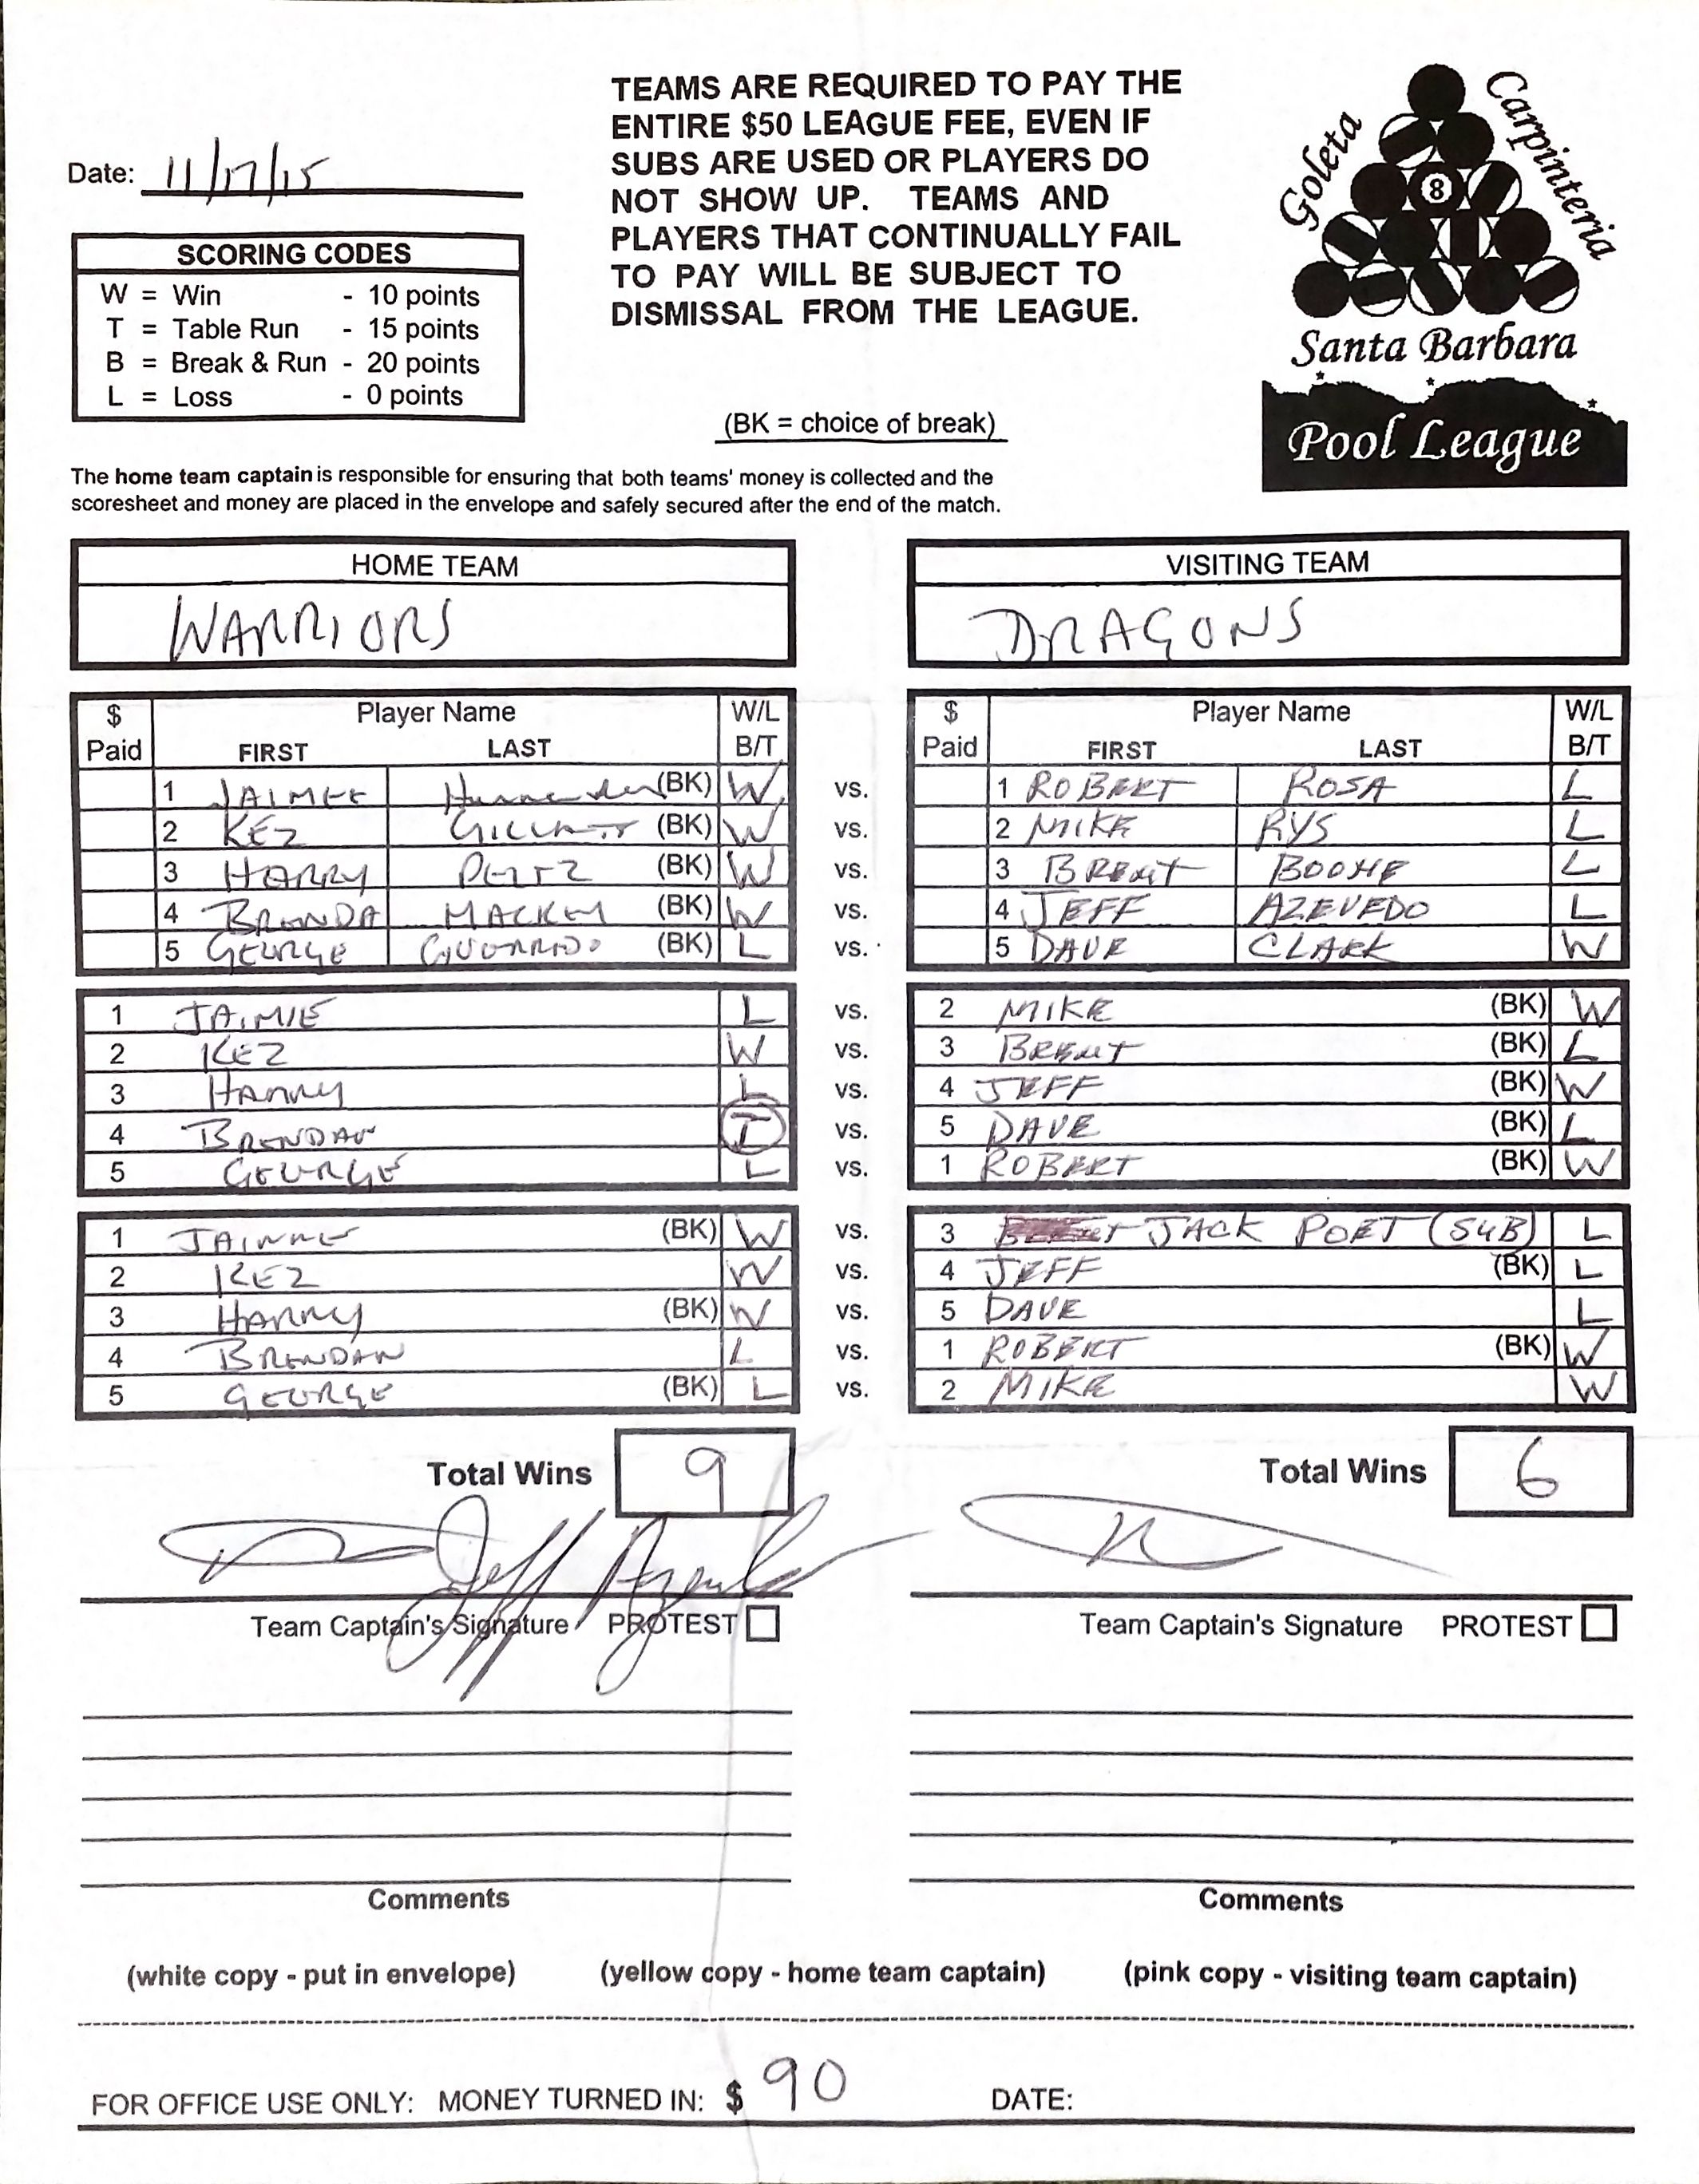 TEAMS ARE REQUIRED TO PAY THE
ENTIRE $50 LEAGUE FEE, EVEN IF
SUBS ARE USED OR PLAYERS DO
NOT SHOW UP. TEAMS AND
PLAYERS THAT CONTINUALLY FAIL
TO PAY WILL BE SUBJECT TO
DISMISSAL FROM THE LEAGUE.
Goleta
Carpinteria
8
Santa Barbara
Pool League
Date: 11/17/15
SCORING CODES
W = Win - 10 points
T = Table Run - 15 points
B = Break & Run - 20 points
L = Loss - 0 points
(BK = choice of break)
The home team captain is responsible for ensuring that both teams' money is collected and the
scoresheet and money are placed in the envelope and safely secured after the end of the match.
HOME TEAM VISITING TEAM
WARRIORS DRAGONS
$ Player Name W/L $ Player Name W/L
Paid FIRST LAST B/T Paid FIRST LAST B/T
1 JAIMEE (BK) W vs. 1 ROBERT ROSA L
2 KEZ (BK) W vs. 2 MIKE RYS L
3 HARRY (BK) W vs. 3 BRENT L
4 BRENDA MACKEY (BK) W vs. 4 JEFF AZEVEDO L
5 GEORGE (BK) L vs. 5 DAVE CLARK W
1 JAIMIE L vs. 2 MIKE (BK) W
2 KEZ W vs. 3 BRENT (BK) L
3 HARRY L vs. 4 JEFF (BK) W
4 BRENDAN T vs. 5 DAVE (BK) L
5 GEORGE L vs. 1 ROBERT (BK) W
1 (BK) W vs. 3 JACK PORT (SUB) L
2 KEZ W vs. 4 JEFF (BK) L
3 HARRY (BK) W vs. 5 DAVE L
4 BRENDAN L vs. 1 ROBERT (BK) W
5 GEORGE (BK) L vs. 2 MIKE W
Total Wins 9 Total Wins 6
Jeff Azevedo
Team Captain's Signature PROTEST Team Captain's Signature PROTEST
Comments Comments
(white copy - put in envelope) (yellow copy - home team captain) (pink copy - visiting team captain)
FOR OFFICE USE ONLY: MONEY TURNED IN: $ 90 DATE: